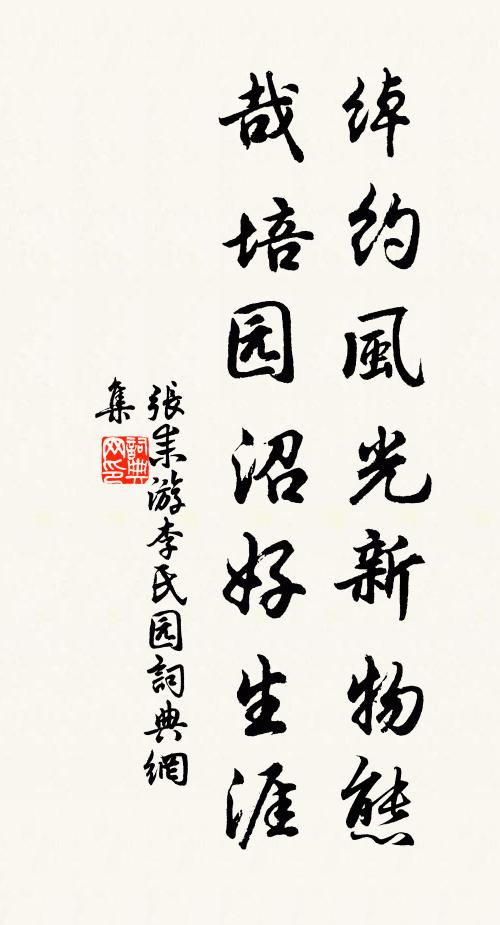 綽約風光新物態
哉培园沼好生涯
張耒游李氏园詞典網
集
詞典
网印